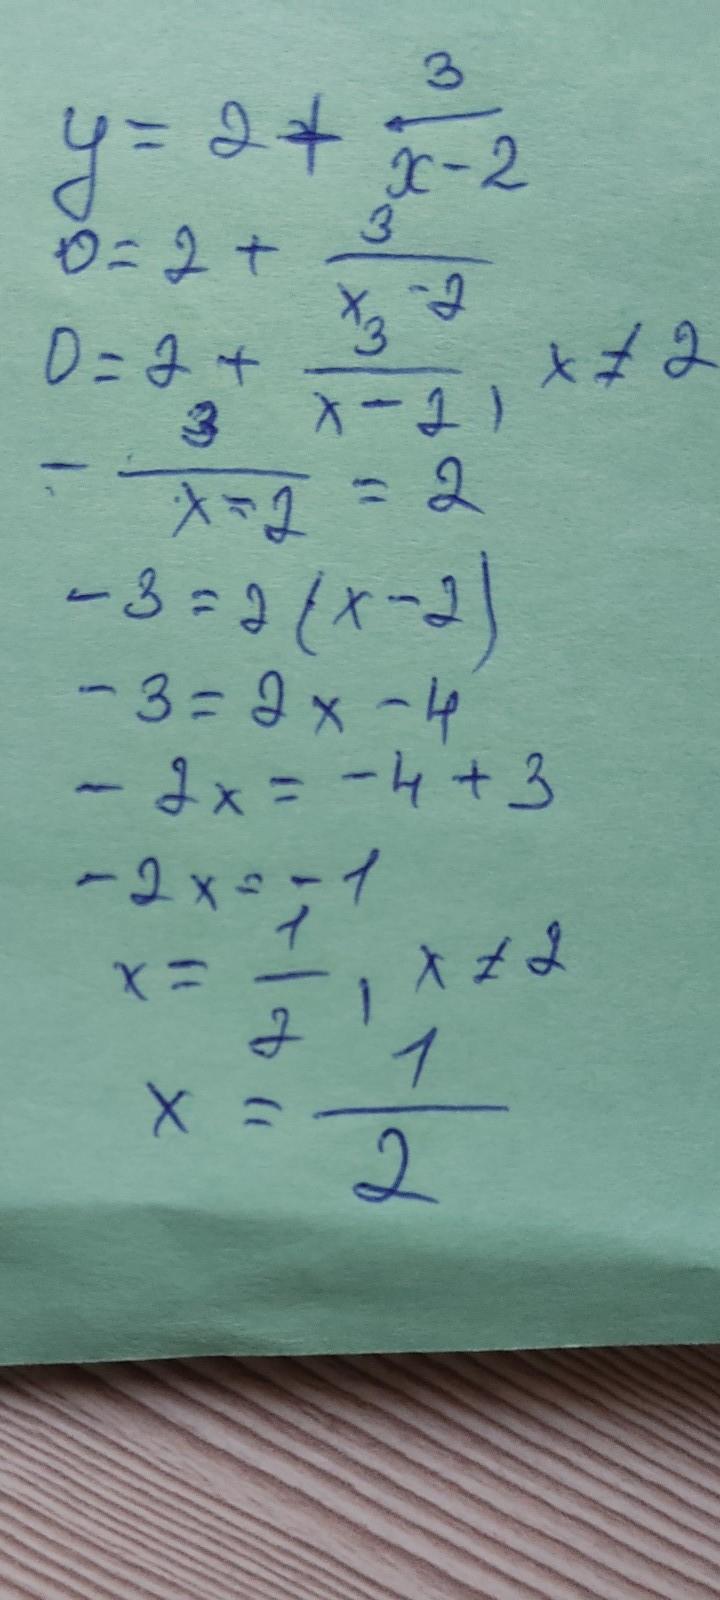 y = 2 + 3/(x-2)
0 = 2 + 3/(x-2)
0 = 2 + 3/(x-2), x ≠ 2
- 3/(x-2) = 2
-3 = 2(x-2)
-3 = 2x - 4
- 2x = -4 + 3
-2x = -1
x = 1/2, x ≠ 2
x = 1/2